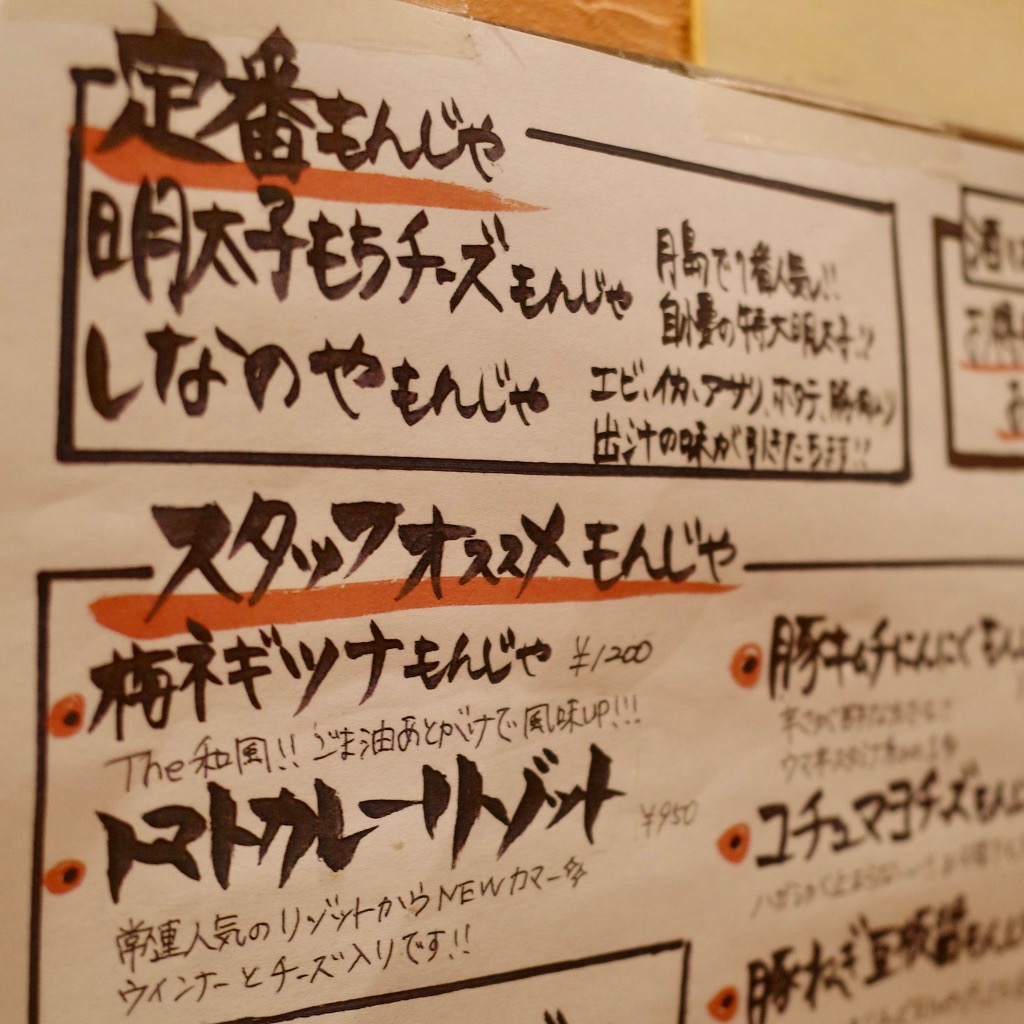 定番もんじゃ
明太子もちチーズもんじゃ
月島で1番人気!!
自慢の特大明太子!!
しなのやもんじゃ
エビ、イカ、アサリ、ホタテ、豚肉入り
出汁の味が引きたちます!!
酒
スタッフオススメもんじゃ
梅ネギツナもんじゃ ¥1200
The和風!! ごま油あとがけで風味UP!!!
トマトカレーリゾット ¥950
常連人気のリゾットからNEWカマー
ウインナーとチーズ入りです!!
豚キムチにんにくもん
コチュマヨチーズもん
豚ねぎ豆板醤もん